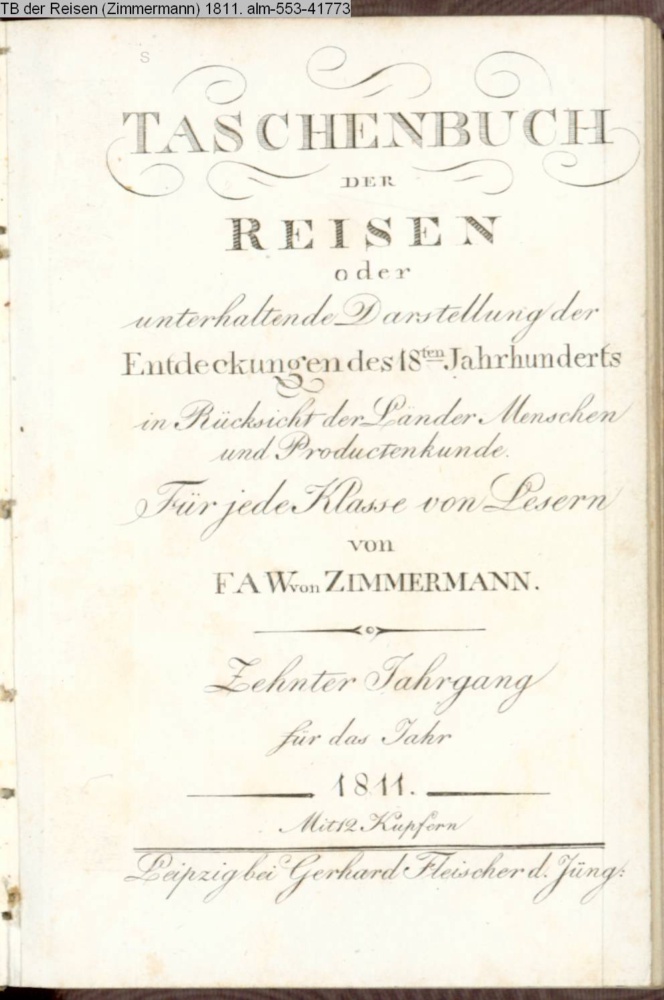 TB der Reisen (Zimmermann) 1811. alm-553-41773
S
TASCHENBUCH
DER
REISEN
oder
unterhaltende Darstellung der
Entdeckungen des 18ten Jahrhunderts
in Rücksicht der Länder Menschen
und Productenkunde.
Für jede Klasse von Lesern
von
F A W von ZIMMERMANN.
Zehnter Jahrgang
für das Jahr
1811.
Mit 12 Kupfern
Leipzig bei Gerhard Fleischer d. Jüng: